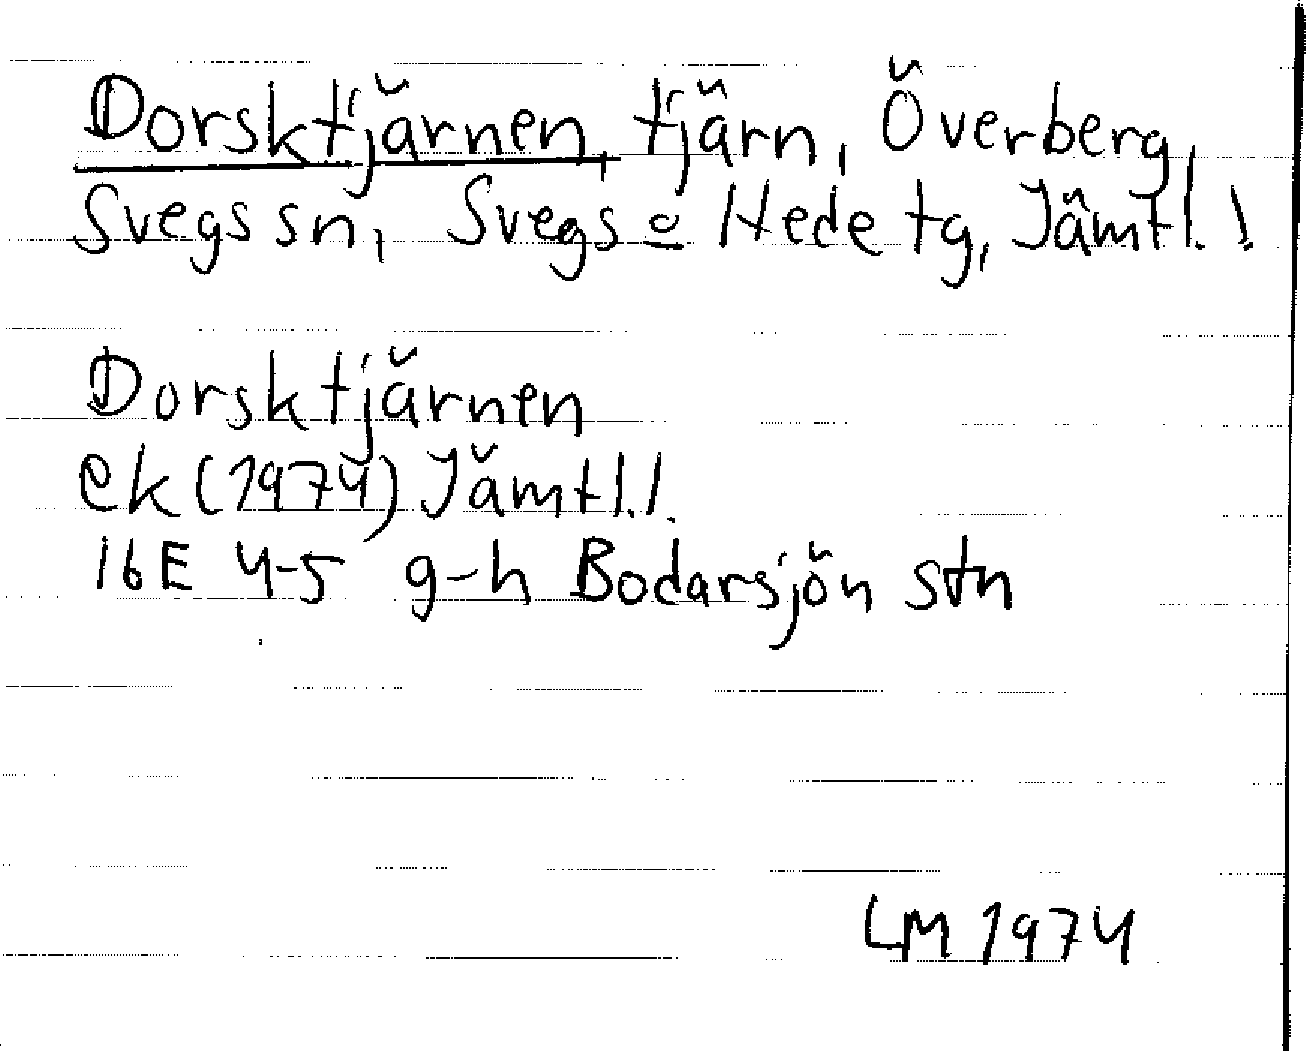 Dorsktjärnen, tjärn, Överberg,
Svegs sn, Svegs o Hede tg, Jämtl. l.
Dorsktjärnen
ek (1974) Jämtl. l.
16E 4-5 g-h Bodarsjön stn
LM 1974